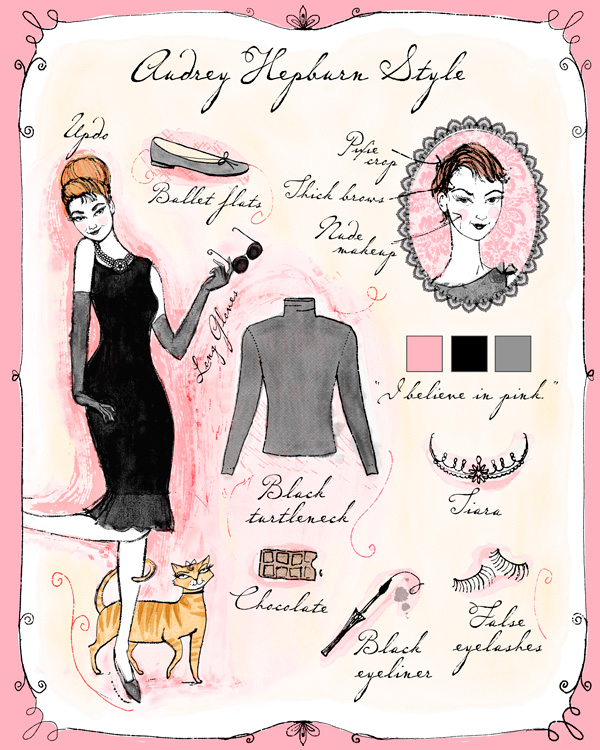 Audrey Hepburn Style
Updo
Ballet flats
Pixie
crop
Thick brows
Nude
makeup
Long Gloves
"I believe in pink."
Black
turtleneck
Tiara
Chocolate
Black
eyeliner
False
eyelashes